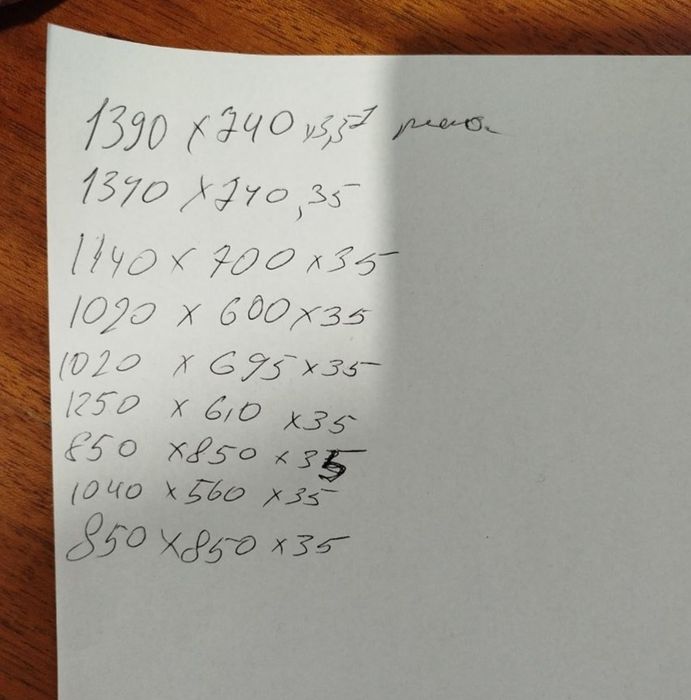 1390 x 740 x3,5
1340 x 740, 35
1140 x 700 x 35
1020 x 600 x 35
1020 x 695 x 35
1250 x 610 x 35
850 x 850 x 35
1040 x 560 x 35
850 x 850 x 35